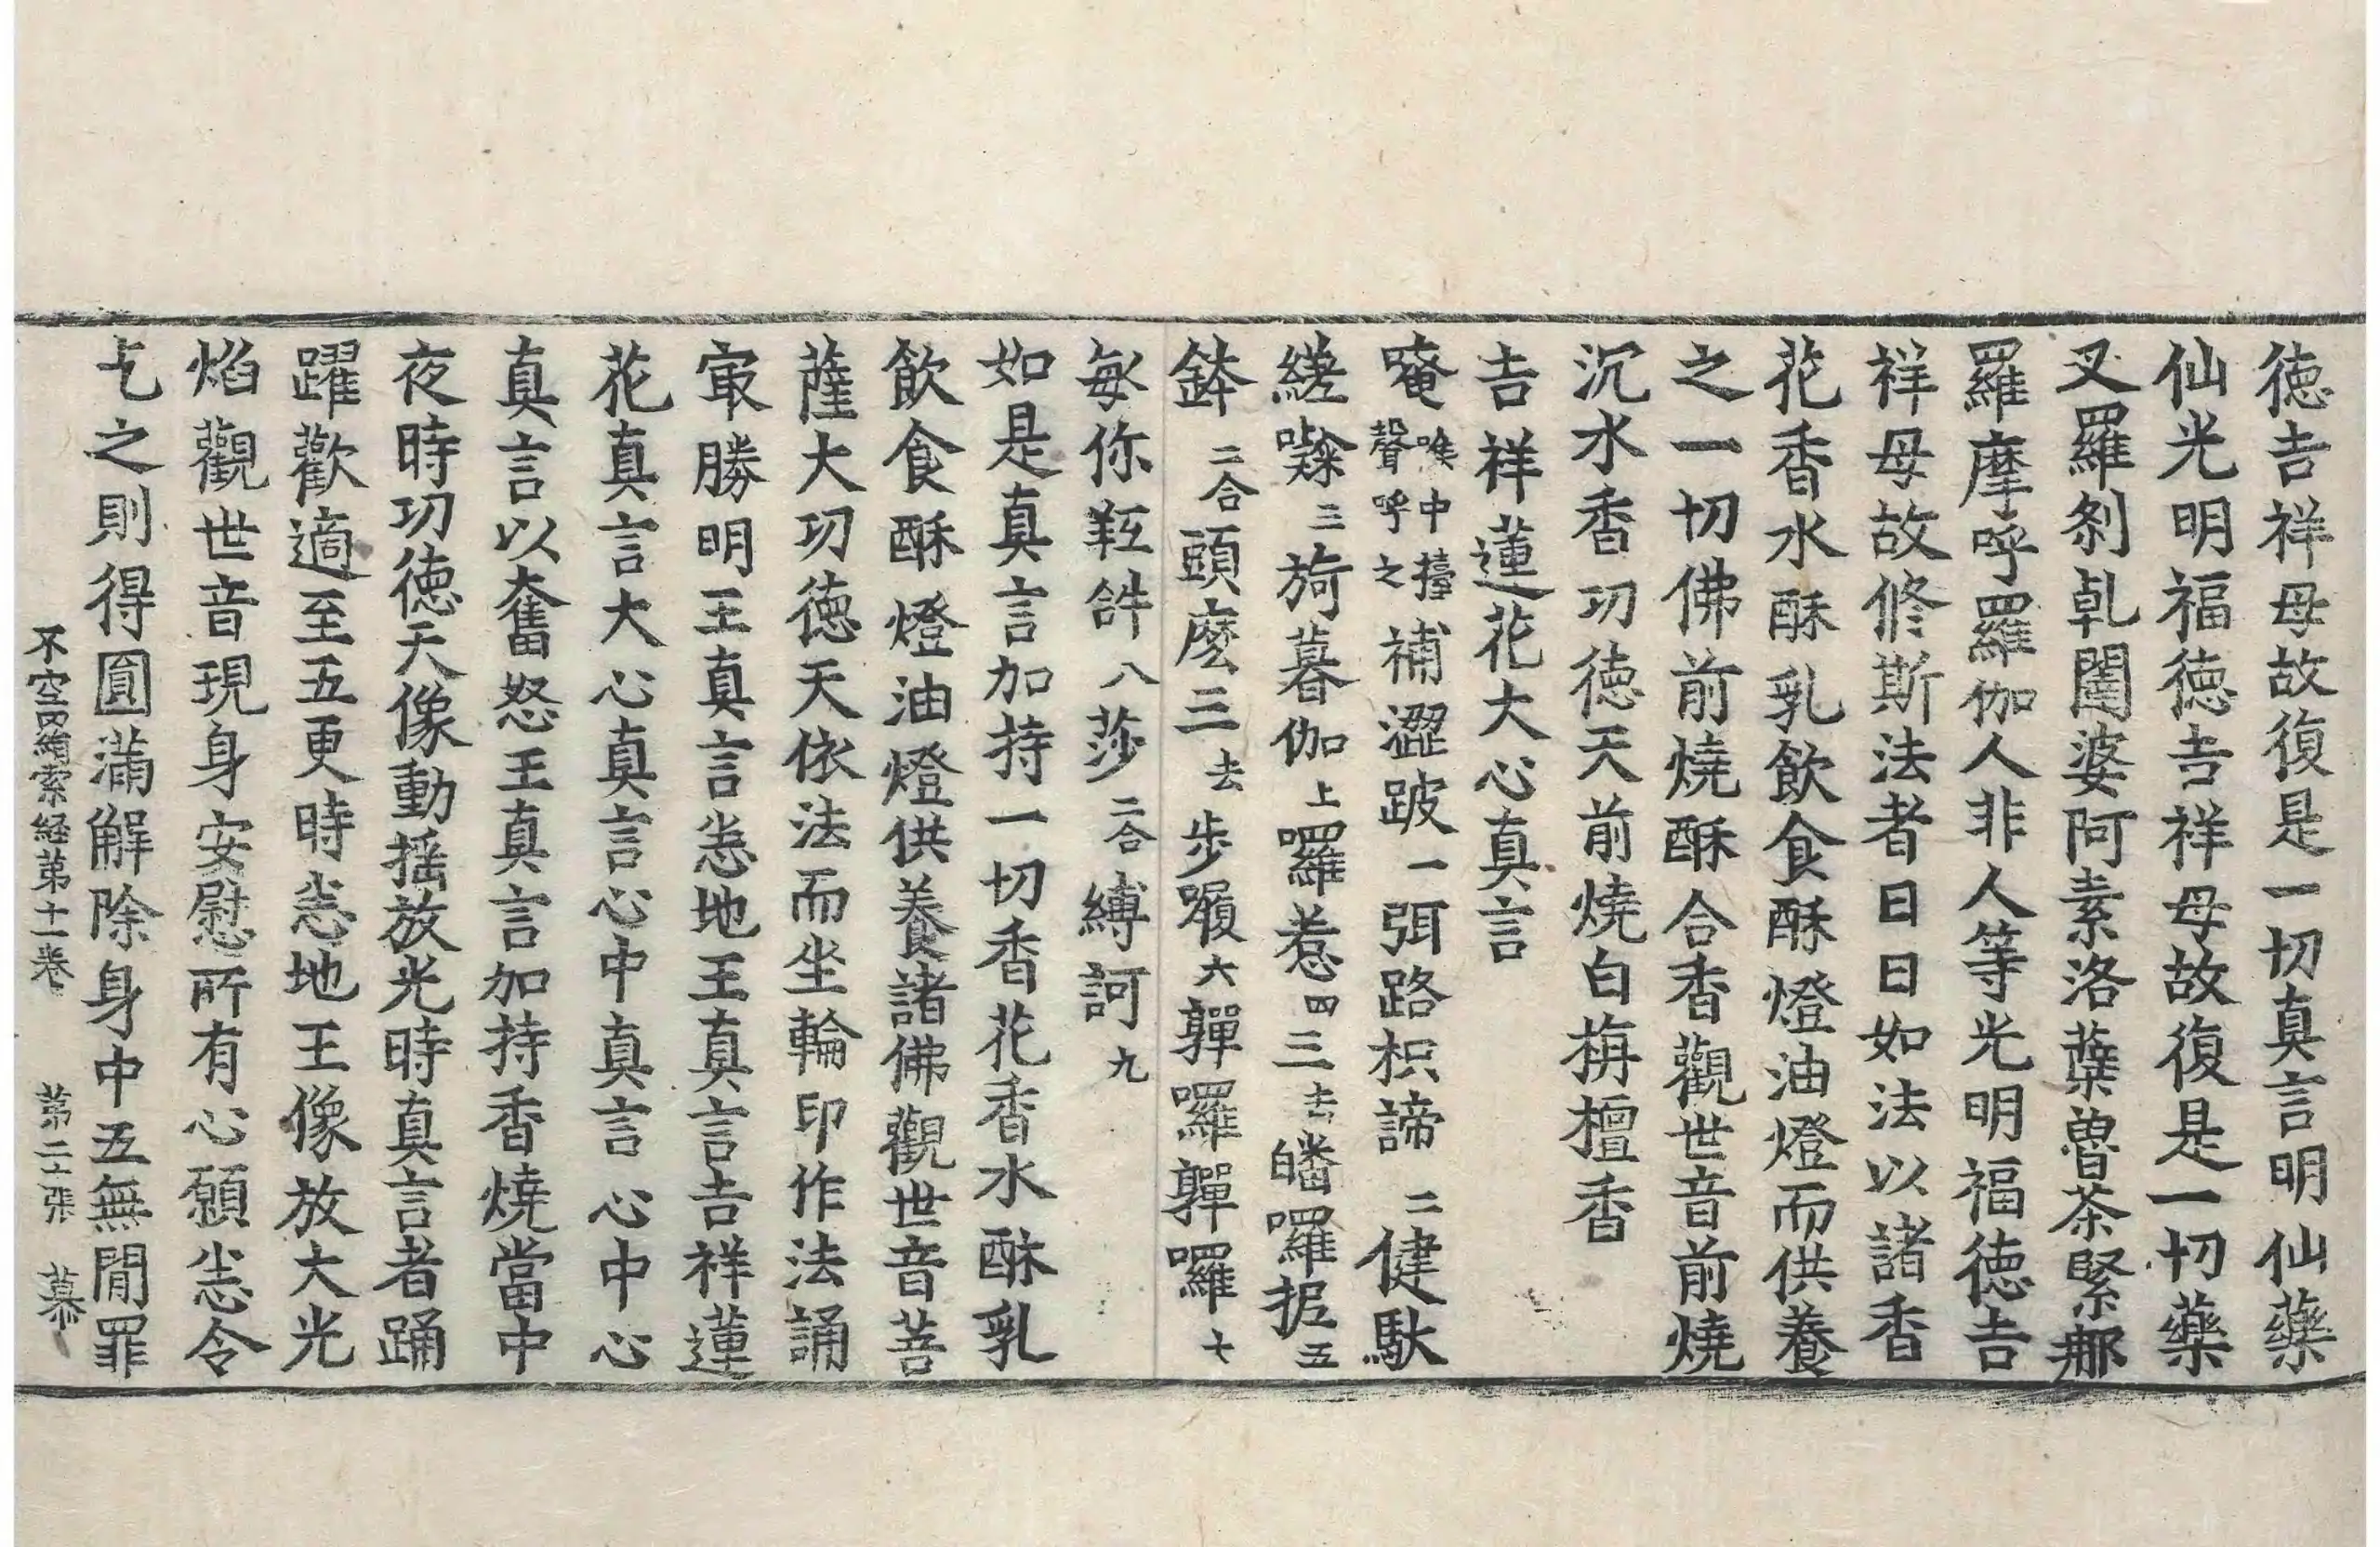 徳吉祥母故復是一切真言明仙藥
仙光明福徳吉祥母故復是一切藥
叉羅刹乹闥婆阿素洛蘖魯茶緊那
羅摩呼羅伽人非人等光明福徳吉
祥母故修斯法者日日如法以諸香
花香水酥乳飲食酥燈油燈而供養
之一切佛前燒酥合香觀世音前燒
沉水香功徳天前燒白栴檀香
吉祥蓮花大心真言
唵喉中擡聲呼之補澀跛一弭路枳諦二健馱
縒㘑三旖暮伽上囉惹四三去皤囉抳五
鉢二合頭麽三去步囉六嚲囉嚲囉七
每你䩭𤙖八莎二合縛訶九
如是真言加持一切香花香水酥乳
飲食酥燈油燈供養諸佛觀世音菩
薩大功徳天依法而坐輪印作法誦
㝡勝明王真言恚地王真言吉祥蓮
花真言大心真言心中真言心中心
真言以奮怒王真言加持香燒當中
夜時功徳天像動摇放光時真言者踊
躍歡適至五更時恚地王像放大光
焰觀世音現身安慰所有心願恚令
乞之則得圓滿解除身中五無間罪
不空羂索経第十一卷　第二十張　慕